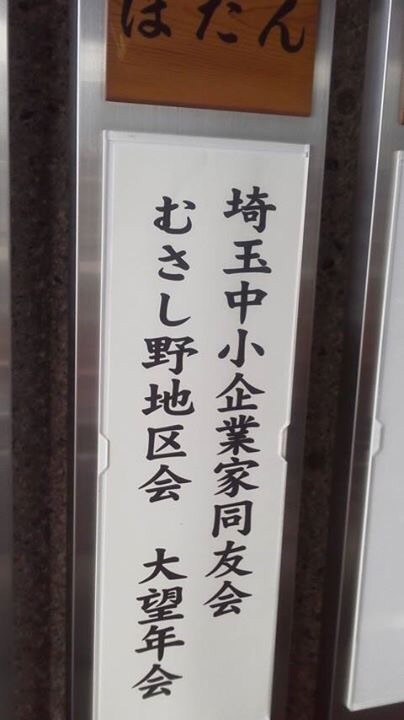 ぼたん
埼玉中小企業家同友会
むさし野地区会 大望年会